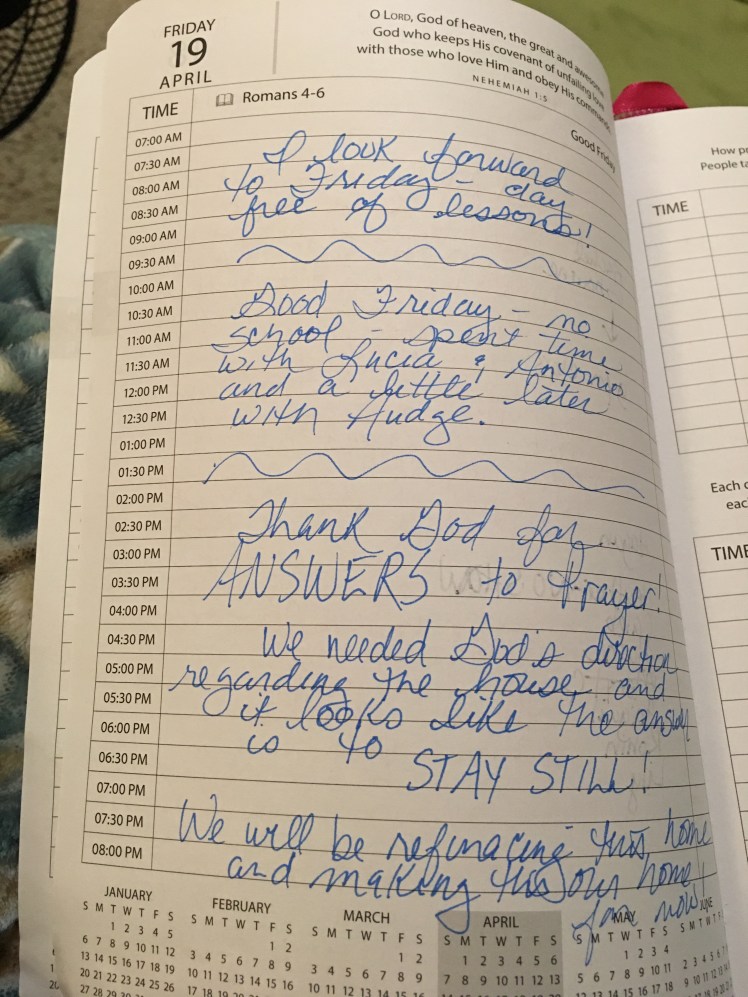 FRIDAY
19
APRIL
O LORD, God of heaven, the great and awesome
God who keeps His covenant of unfailing love
with those who love Him and obey His commands
NEHEMIAH 1:5
TIME
Romans 4-6
Good Friday
07:00 AM
07:30 AM
08:00 AM
08:30 AM
09:00 AM
09:30 AM
10:00 AM
10:30 AM
11:00 AM
11:30 AM
12:00 PM
12:30 PM
01:00 PM
01:30 PM
02:00 PM
02:30 PM
03:00 PM
03:30 PM
04:00 PM
04:30 PM
05:00 PM
05:30 PM
06:00 PM
06:30 PM
07:00 PM
07:30 PM
08:00 PM
I look forward
to Friday - day
free of lessons!
Good Friday - no
school - spent time
with Lucia & Antonio
and a little later
with Hudge.
Thank God for
ANSWERS to Prayer!
We needed God's direction
regarding the house and
it looks like the answer
is to
STAY STILL!
We will be refinacing this home
and making this our home
for now!
JANUARY
S M T W T F S
1 2 3 4 5
6 7 8 9 10 11 12
13 14 15 16 17 18 19
20 21 22 23 24 25 26
27 28 29 30 31
FEBRUARY
S M T W T F S
1 2
3 4 5 6 7 8 9
10 11 12 13 14 15 16
MARCH
S M T W T F S
1 2
3 4 5 6 7 8 9
APRIL
S M T W T F S
1 2 3 4 5 6
7 8 9 10 11 12 13
MAY
S M T W T F S
1 2 3 4
5 6 7 8 9 10 11
JUNE
S M T W T F
2 3 4 5 6 7
How
People
TIME
Each
TIME